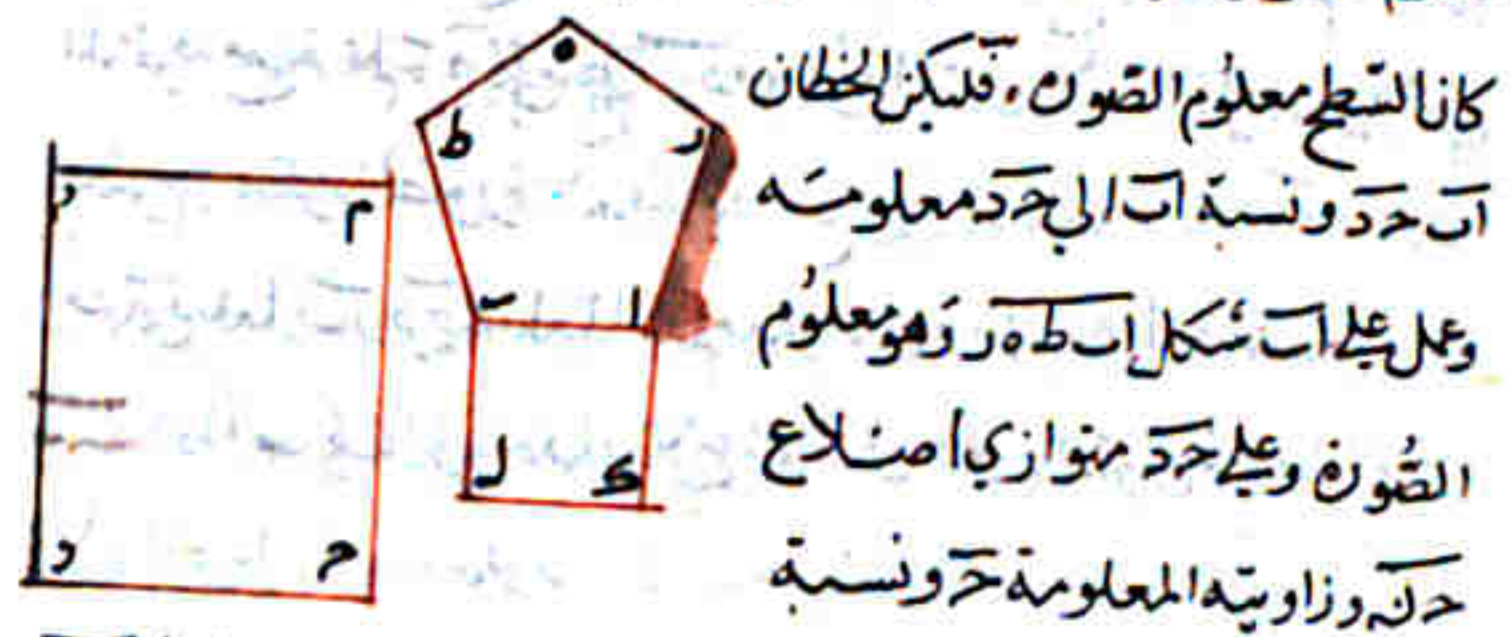 كان السطح معلوم الصورة، فليكن الخطان
اب حد ونسبة اب الي حد معلومة
وعمل علي اب شكل اب ط ه ر وهو معلوم
الصورة وعلي حد متوازي اضلاع
حن وزاويته المعلومة ح ونسبة
ه
ط ر
م
ب ا
ل ك
د ح